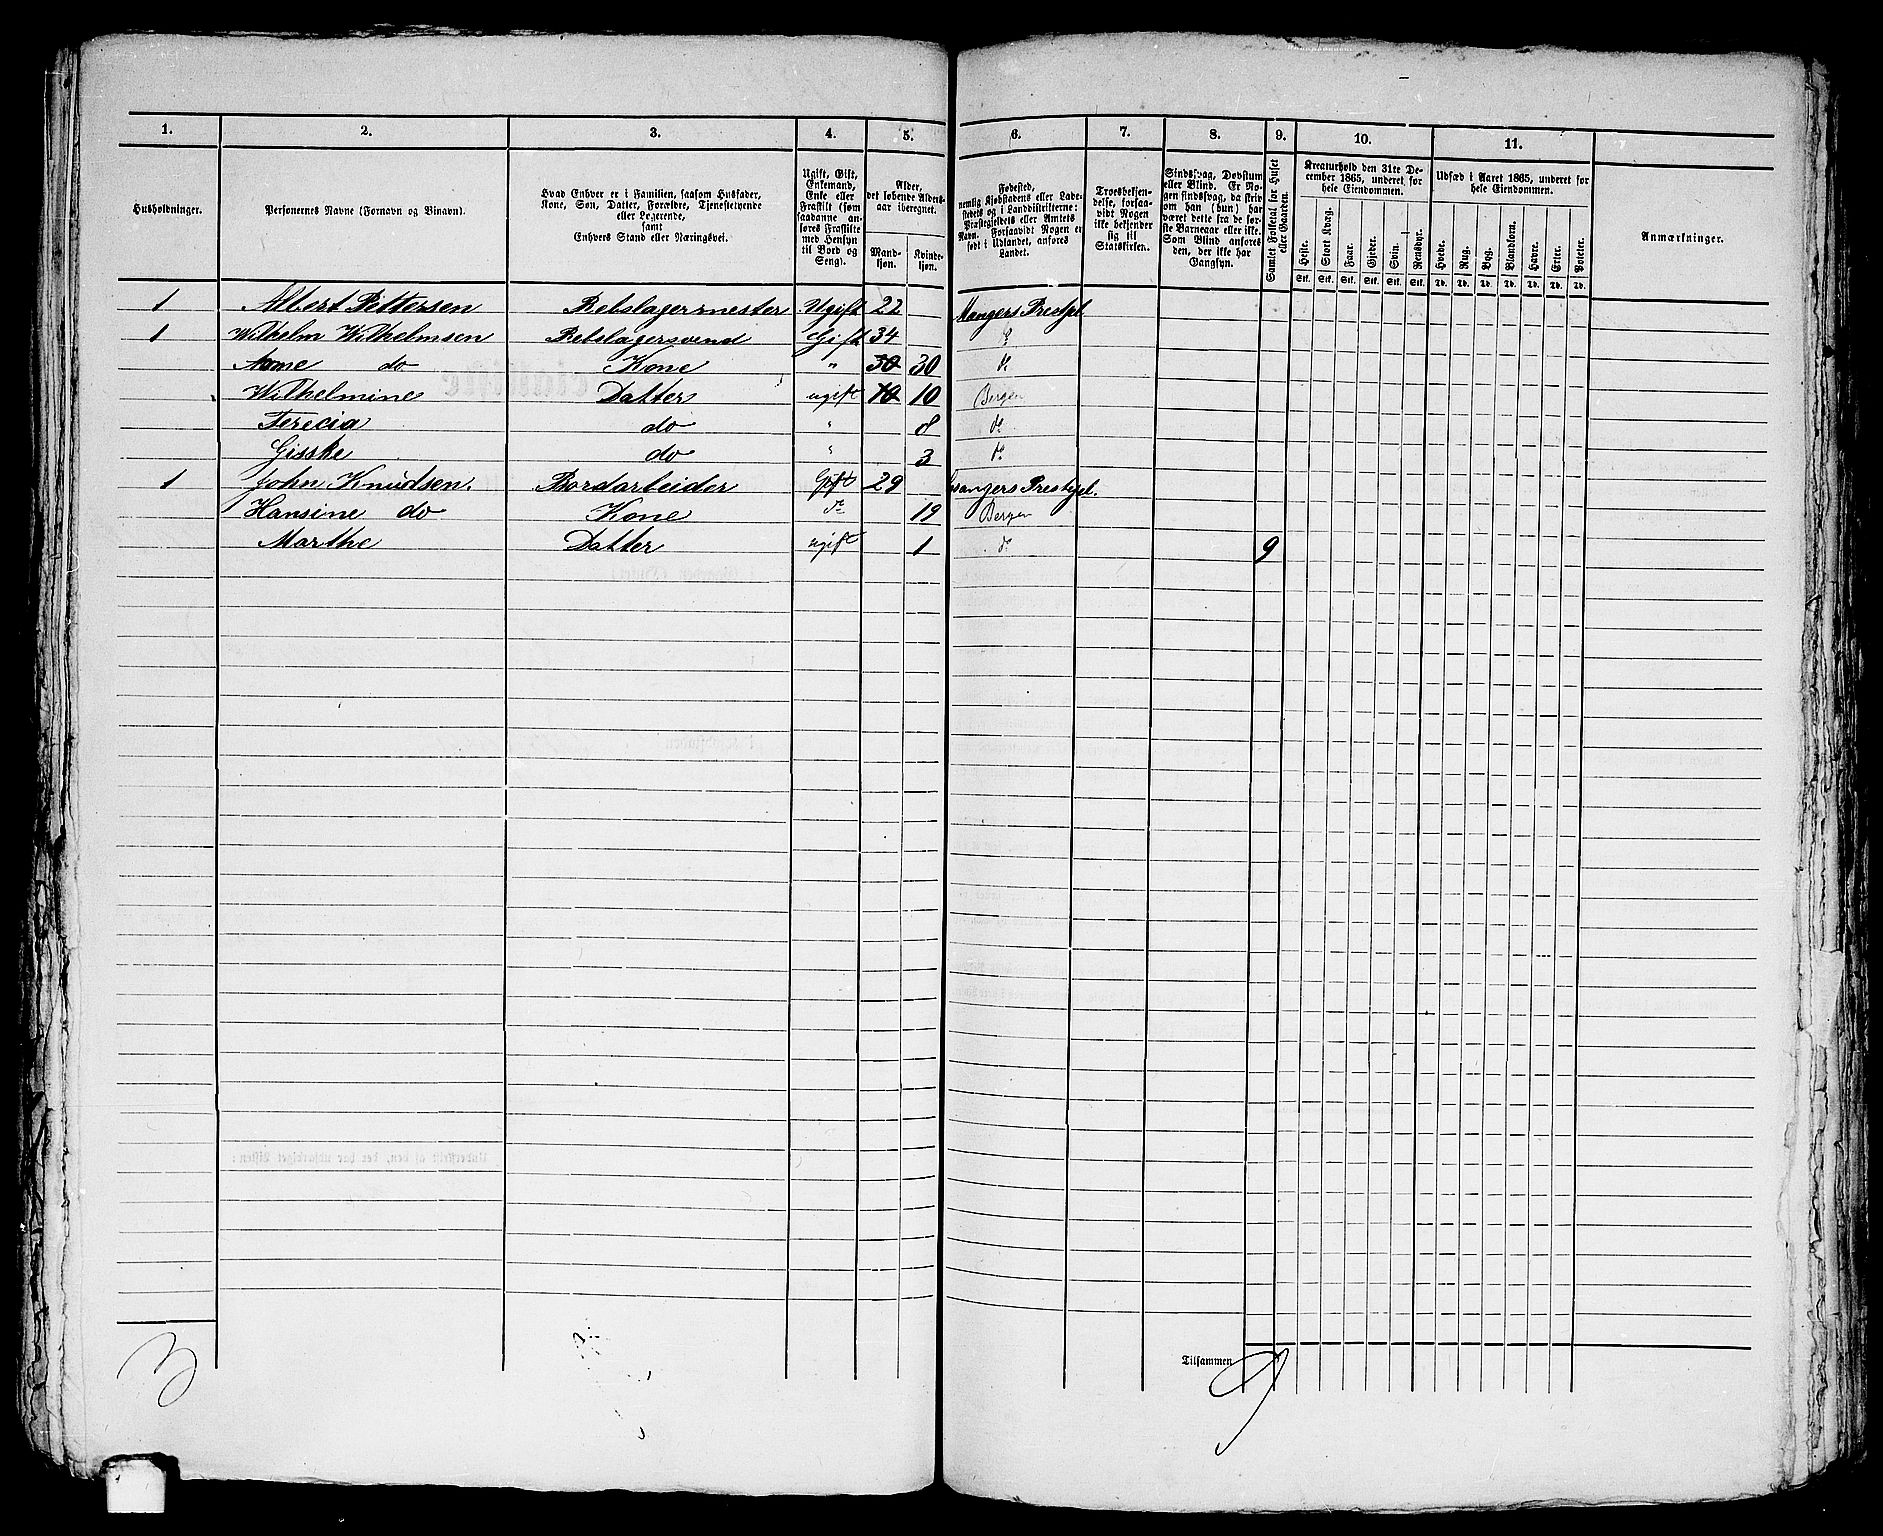 1. 2. 3. 4. 5. 6. 7. 8. 9. 10. 11.
Husholdninger.
Personernes Navne (Fornavn og Binavn).
Hvad Enhver er i Familien, saasom Husfader,
Kone, Søn, Datter, Forældre, Tjenestetyende
eller Logerende,
samt
Enhvers Stand eller Næringsvei.
Ugift, Gift,
Enkemand,
Enke eller
Fraskilt (som
saadanne an-
føres Fraskilte
med Hensyn
til Bord og
Seng).
Alder,
det løbende Alders-
aar iberegnet.
Mand-
kjøn.
Kvinde-
kjøn.
Fødested,
nemlig Kjøbstadens eller Lade-
stedets og i Landdistrikterne:
Præstegjeldets eller Amtets
Navn. Forsaavidt Nogen er
født i Udlandet, anføres
Landet.
Troesbekjen-
delse, forsaa-
vidt Nogen
ikke bekjender
sig til
Statskirken.
Sindssvag, Døvstum
eller Blind. Er No-
gen sindssvag, da skriv
om han (hun) har
været dette fra de før-
ste Barneaar eller ikke.
Som Blind anføres
den, der ikke har
Gangsyn.
Samlet Folketal for Huset
eller Gaarden.
Kreaturhold den 31te De-
cember 1865, underet for
hele Eiendommen.
Heste. Stort Kvæg. Faar. Gjeder. Svin. Rensdyr.
Stk. Stk. Stk. Stk. Stk. Stk.
Udsæd i Aaret 1865, underet for
hele Eiendommen.
Hvede. Rug. Byg. Blandkorn. Havre. Erter. Poteter.
Td. Td. Td. Td. Td. Td. Td.
Anmærkninger.
1 Albert Pettersen Rebslagermester Ugift 22 Mangers Prestgl
1 Wilhelm Wilhelmsen Rebslagersvend Gift 34
do Kone " 30 30 do
Wilhelmine Datter ugift 10 10 Bergen
Terecia do " 8 do
Gisske do " 3 do
1 John Knudsen. Bordarbeider Gift 29 Prestegl.
Hansine do Kone do 19 Bergen
Marthe Datter ugift 1 do 9
3
Tilsammen 9